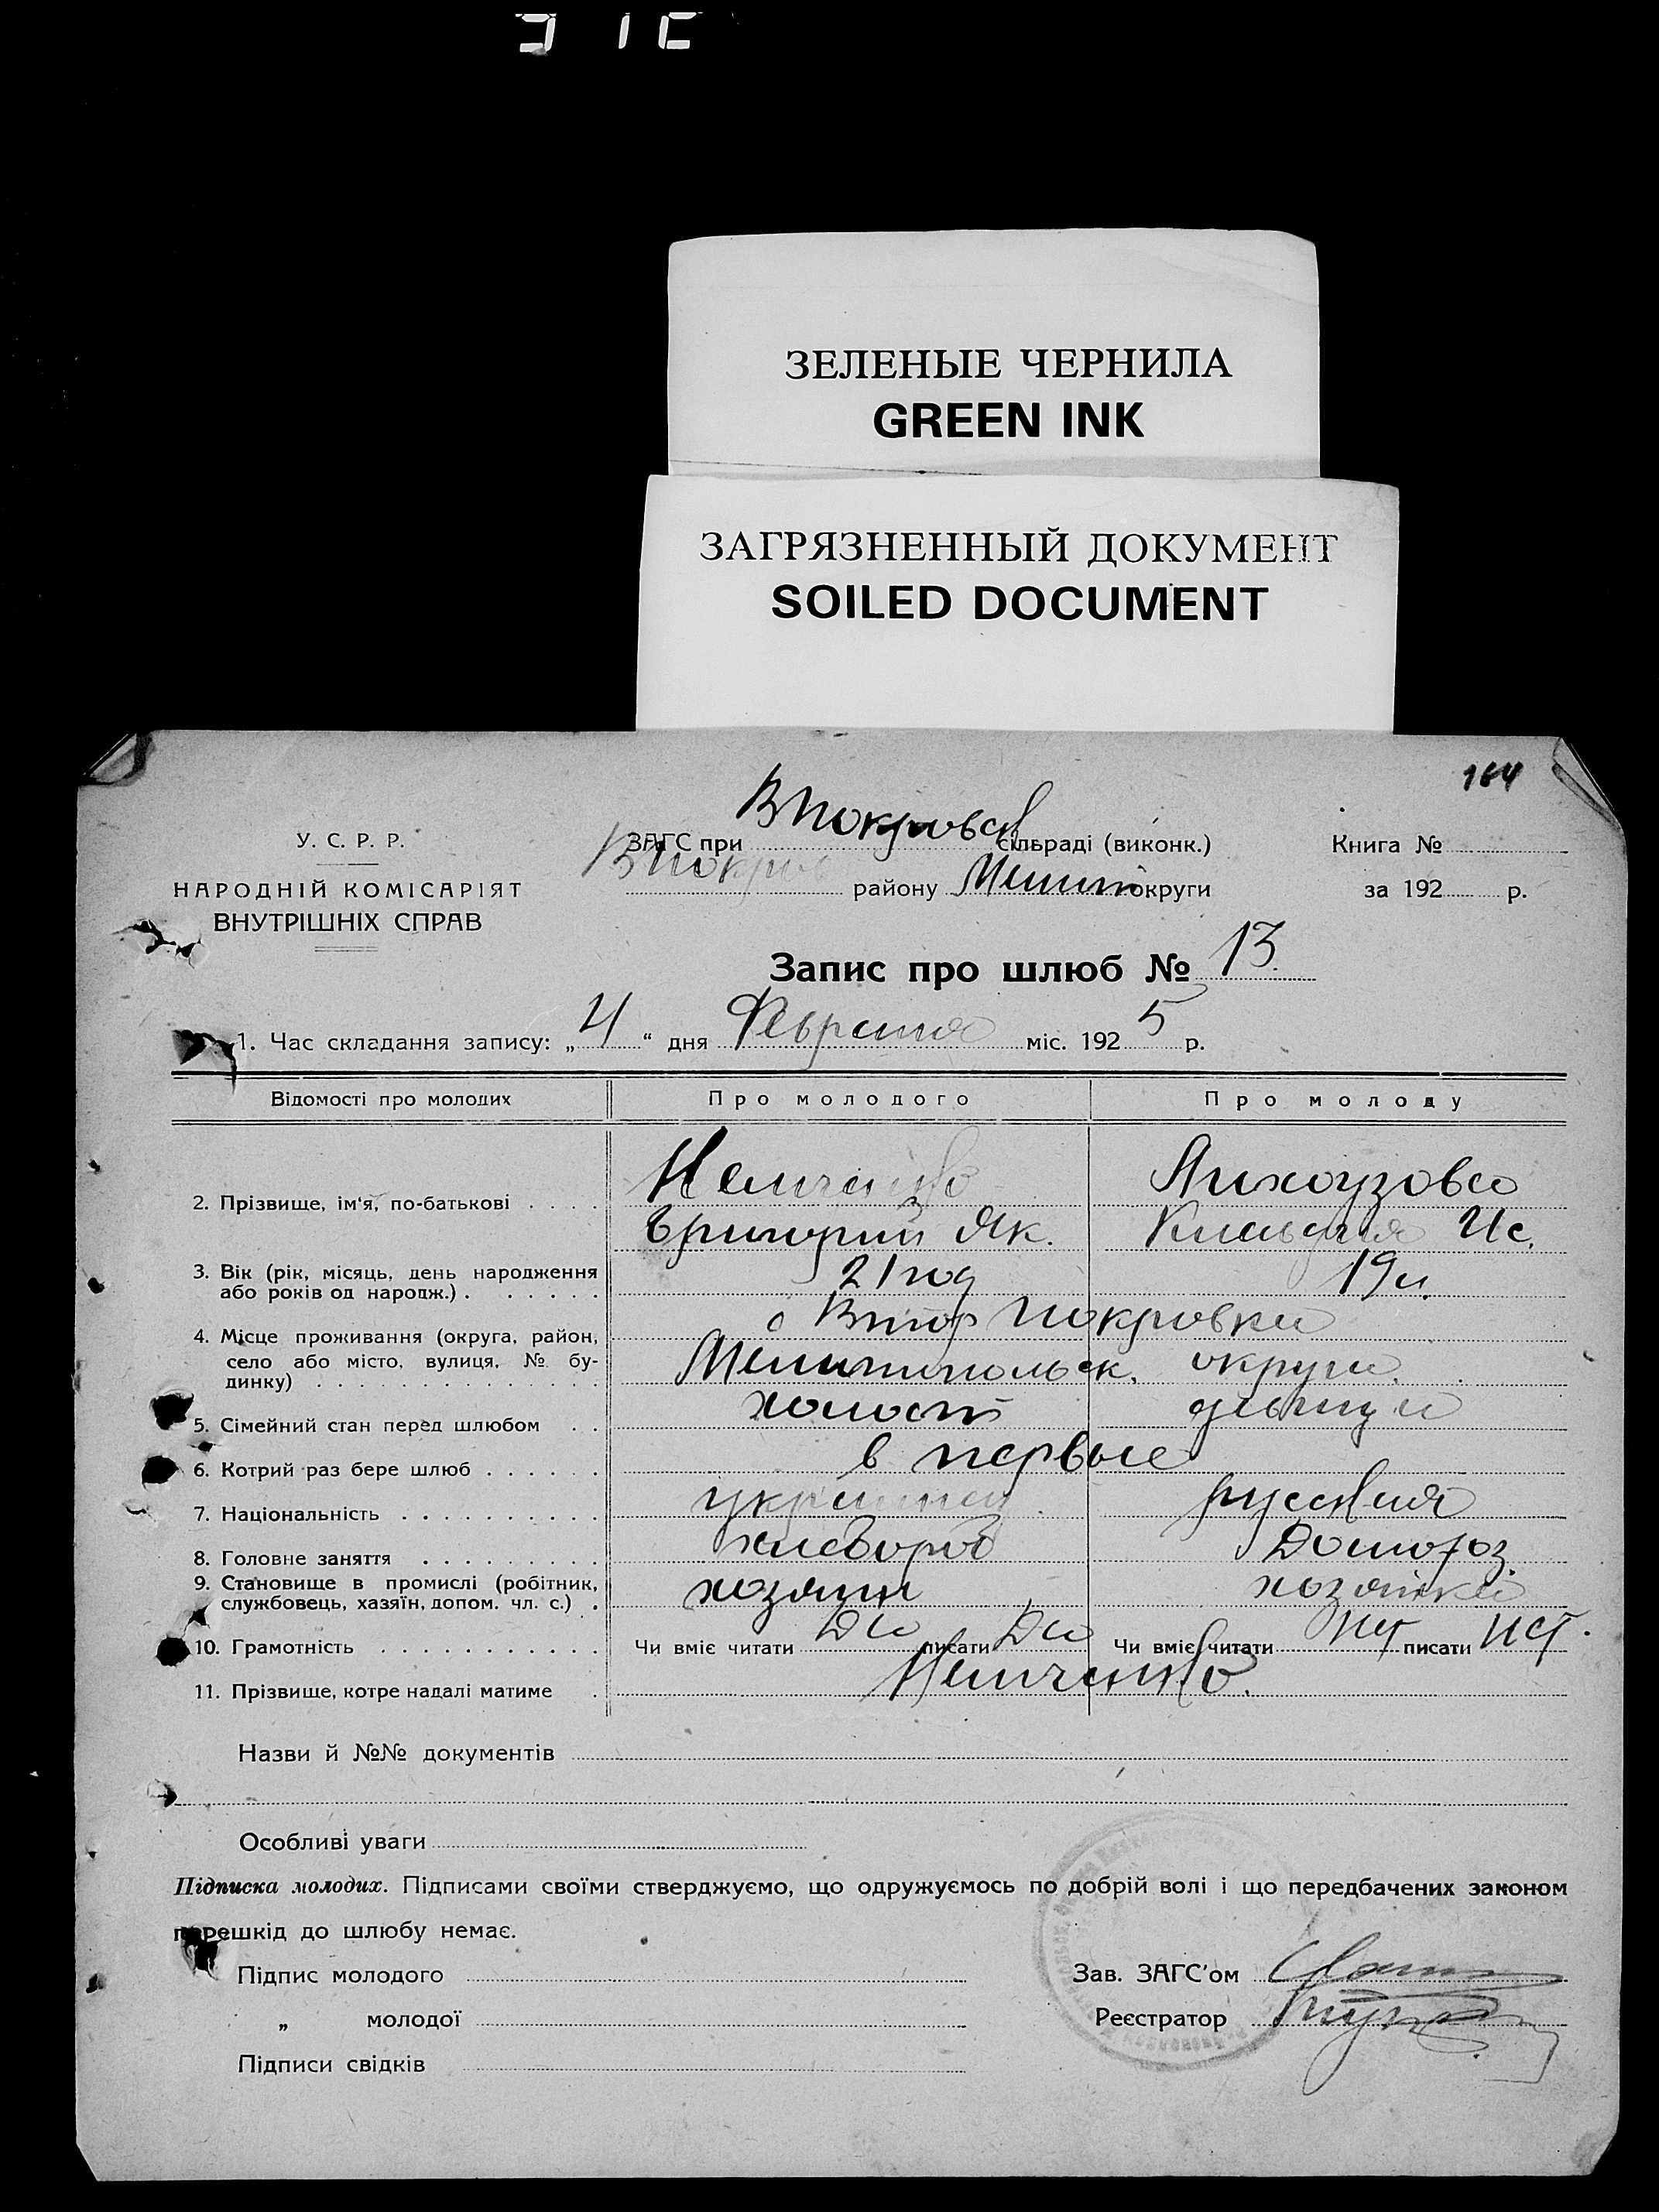 ЗЕЛЕНЫЕ ЧЕРНИЛА
GREEN INK
ЗАГРЯЗНЕННЫЙ ДОКУМЕНТ
SOILED DOCUMENT
164
У. С. Р. Р.
НАРОДНІЙ КОМІСАРІЯТ
ВНУТРІШНІХ СПРАВ
ЗАГС при В Покровск сільраді (виконк.)
В Покров району Мелит округи
Книга №
за 192 р.
Запис про шлюб № 13.
1. Час складання запису: „ 4 “ дня Февраля міс. 192 5 р.
Відомості про молодих Про молодого Про молоду
2. Прізвище, ім'я, по-батькові . . . . Немченко Лихоузова
Григорий Як. Клавдия Ис.
3. Вік (рік, місяць, день народження 21 год 19 л.
або років од народж.) . . . . . .
4. Місце проживання (округа, район, с Втор Покровка
село або місто, вулиця, № бу- Мелитопольск. округи.
динку) . . . . . . . . . . . . . .
5. Сімейний стан перед шлюбом . . холост девица
6. Котрий раз бере шлюб . . . . . . в первые
7. Національність . . . . . . . . . . украинец русская
8. Головне заняття . . . . . . . . . хлебороб Домохоз.
9. Становище в промислі (робітник, хозяин хозяйка
службовець, хазяїн, допом. чл. с.) .
10. Грамотність . . . . . . . . . . . Чи вміє читати Да писати Да Чи вміє читати нет писати нет.
11. Прізвище, котре надалі матиме . Немченко.
Назви й №№ документів
Особливі уваги
Підписка молодих. Підписами своїми стверджуємо, що одружуємось по добрій волі і що передбачених законом
перешкід до шлюбу немає.
Підпис молодого
Зав. ЗАГС'ом
„ молодої
Реєстратор
Підписи свідків